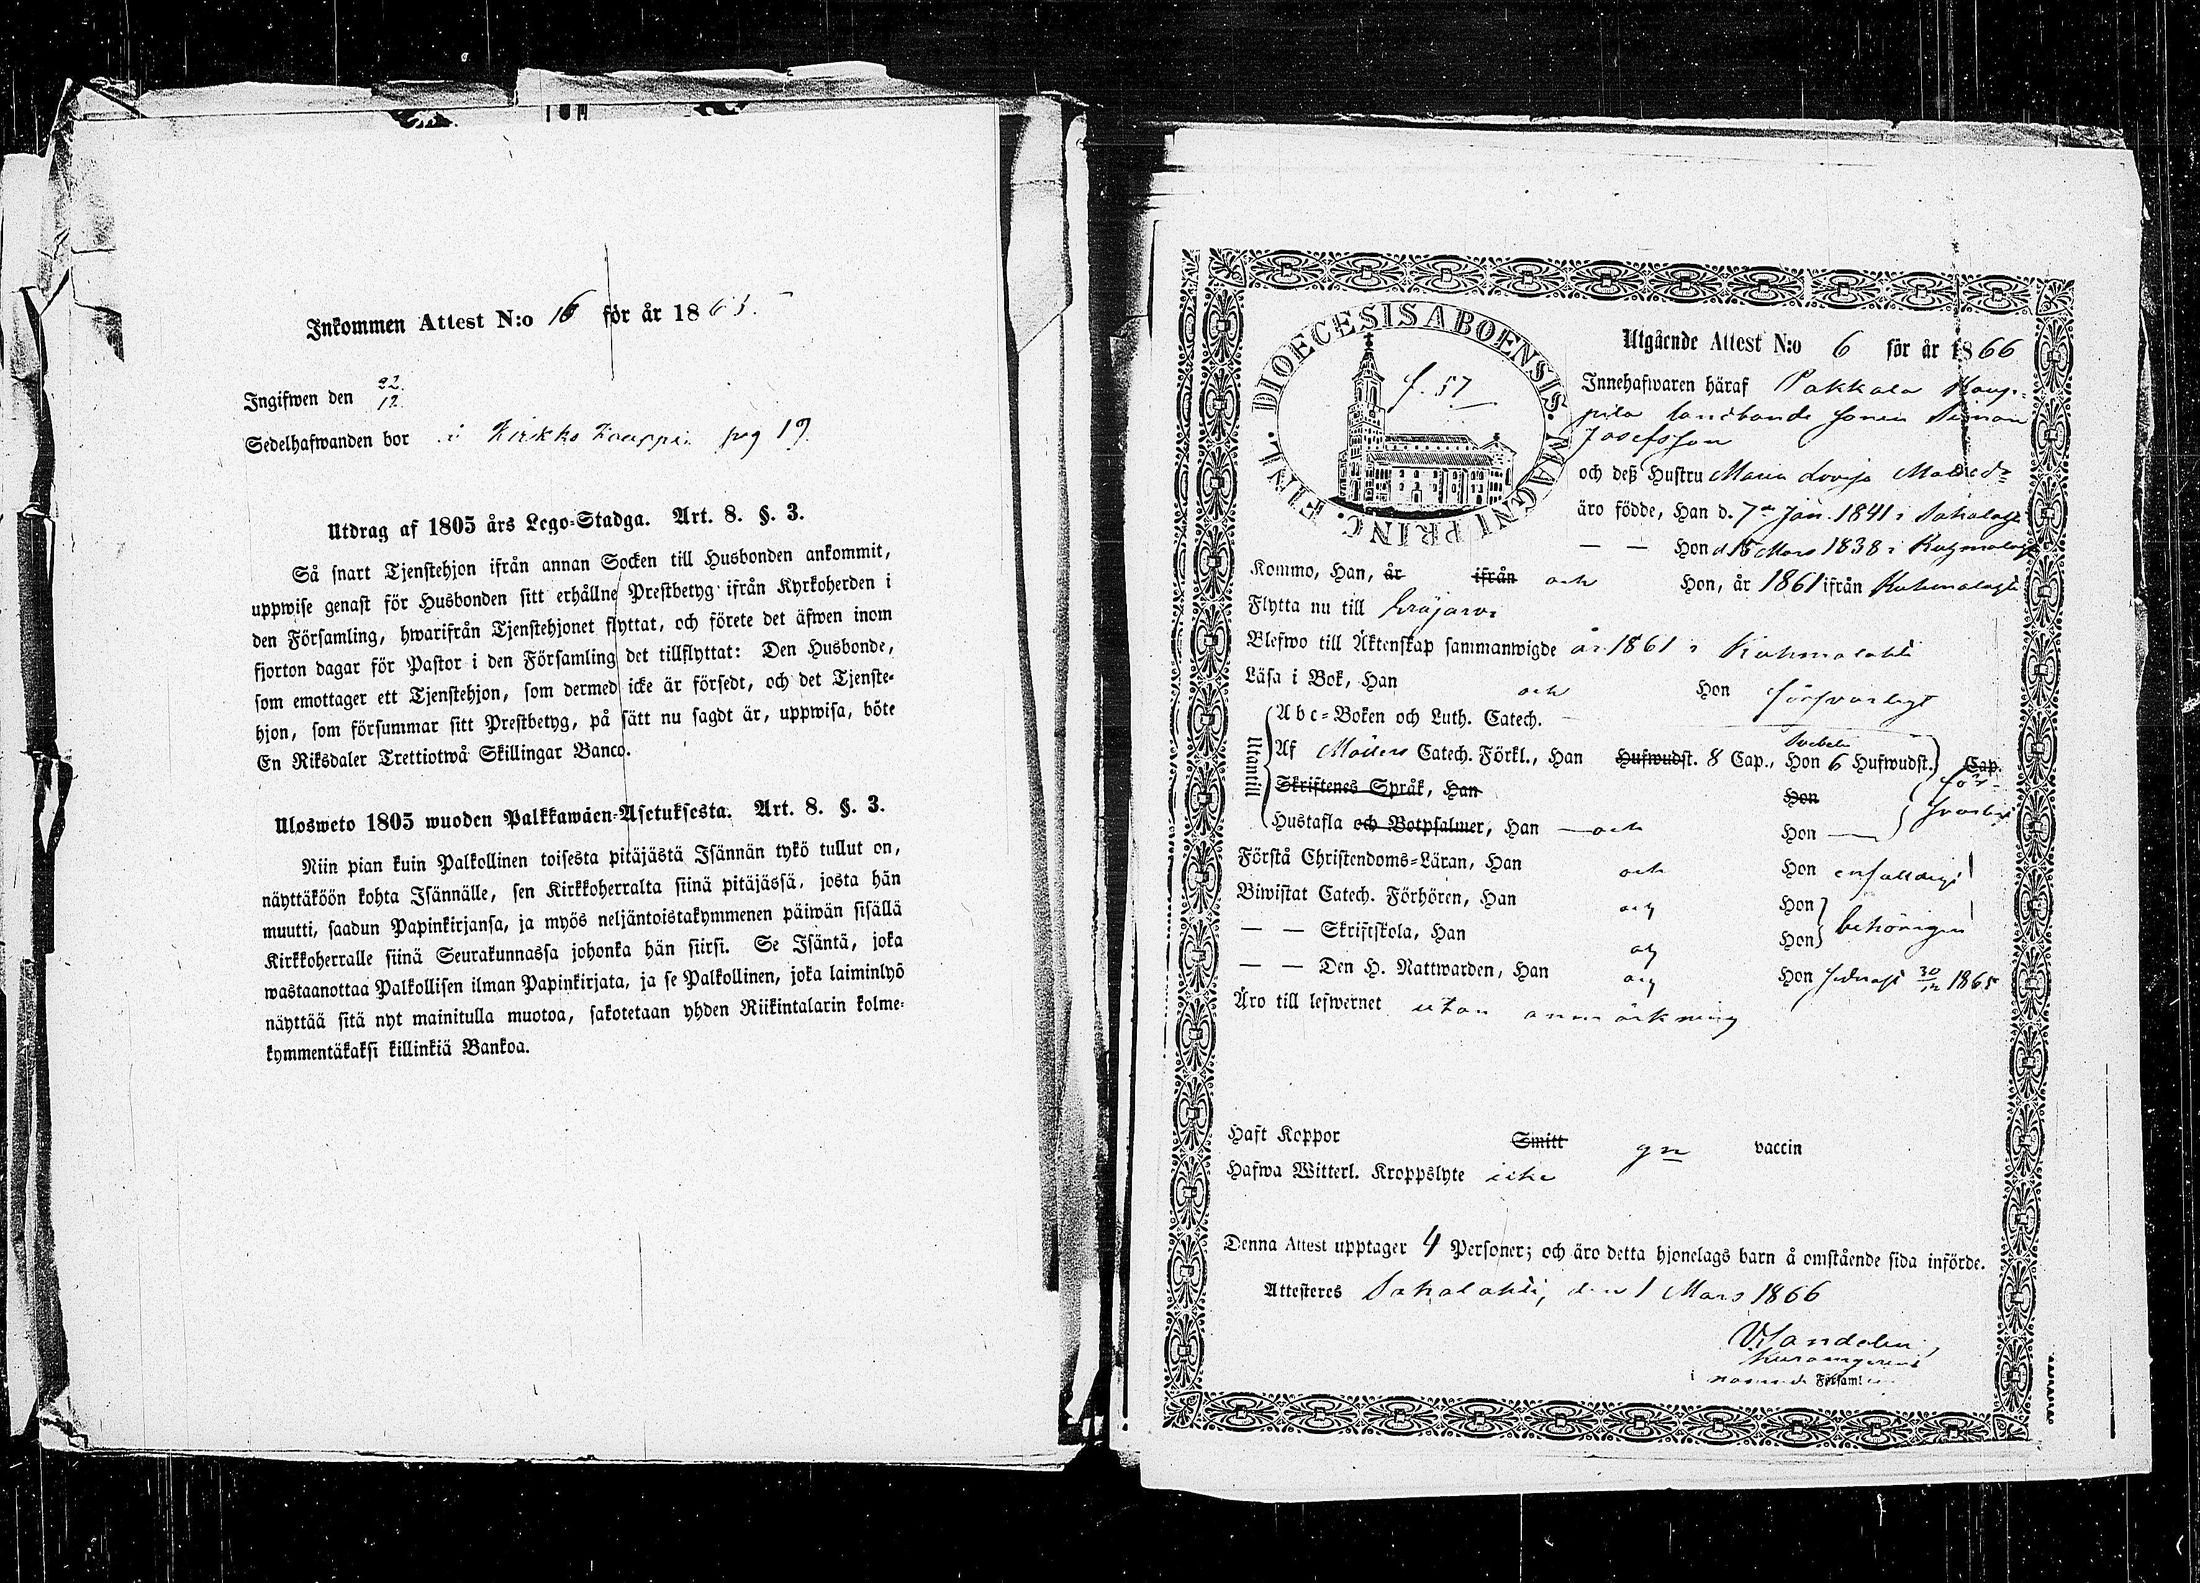 Inkommen Attest N:o 16 för år 1865.
Ingifwen den 22/12.
Sedelhafwanden bor i Kirkko Kauppi pag 19.
Utdrag af 1805 års Lego-Stadga. Art. 8. §. 3.
Så snart Tjenstehjon ifrån annan Socken till Husbonden ankommit,
uppwise genast för Husbonden sitt erhållne Prestbetyg ifrån Kyrkoherden i
den Församling, hwarifrån Tjenstehjonet flyttat, och förete det äfwen inom
fjorton dagar för Pastor i den Församling det tillflyttat: Den Husbonde,
som emottager ett Tjenstehjon, som dermed icke är försedt, och det Tjenste-
hjon, som försummar sitt Prestbetyg, på sätt nu sagdt är, uppwisa, böte
En Riksdaler Trettiotwå Skillingar Banco.
Ulosweto 1805 wuoden Palkkawäen-Asetuksesta. Art. 8. §. 3.
Niin pian kuin Palkollinen toisesta pitäjästä Isännän tykö tullut on,
näyttäköön kohta Isännälle, sen Kirkkoherralta siinä pitäjässä, josta hän
muutti, saadun Papinkirjansa, ja myös neljäntoistakymmenen päiwän sisällä
Kirkkoherralle siinä Seurakunnassa johonka hän siirsi. Se Isäntä, joka
wastaanottaa Palkollisen ilman Papinkirjata, ja se Palkollinen, joka laiminlyö
näyttää sitä nyt mainitulla muotoa, sakotetaan yhden Riikintalarin kolme-
kymmentäkaksi killinkiä Bankoa.
DIOECESIS ABOENSIS. MAGNI PRINC. FINL.
f. 57
Utgående Attest N:o 6 för år 1866
Innehafwaren häraf Pakkala Kaup-
pila landbonde sonen Simon
Josefsson
och deß Hustru Maria Lovisa Mattsd:r
äro födde, Han d. 7de Jan. 1841 i Sahalahti
— — Hon d 15 Mars 1838 i Kuhmalahti
Kommo, Han, år ifrån och Hon, år 1861 ifrån Kuhmalahti
Flytta nu till
Blefwo till Äktenskap sammanwigde år 1861 i Kuhmalahti
Läsa i Bok, Han och Hon försvarligt
Utantill
Abc-Boken och Luth. Catech. —
Svebelii
Af Möllers Catech. Förkl., Han Hufwudst. 8 Cap., Hon 6 Hufwudst. Cap.
Skriftenes Språk, Han Hon för-
Hustafla och Botpsalmer, Han — och Hon — svarligt
Förstå Christendoms-Läran, Han och Hon enfaldigt
Biwistat Catech. Förhören, Han och Hon
— — Skriftskola, Han och Hon behörigen
— — Den H. Nattwarden, Han och Hon sednast 30/12 1865
Äro till lefwernet utan anmärkning
Haft Koppor Smitt gm vaccin
Hafwa Witterl. Kroppslyte icke
Denna Attest upptager 4 Personer; och äro detta hjonelags barn å omstående sida införde.
Attesteres Sahalahti, den 1 Mars 1866
V Sandelin,
Församl